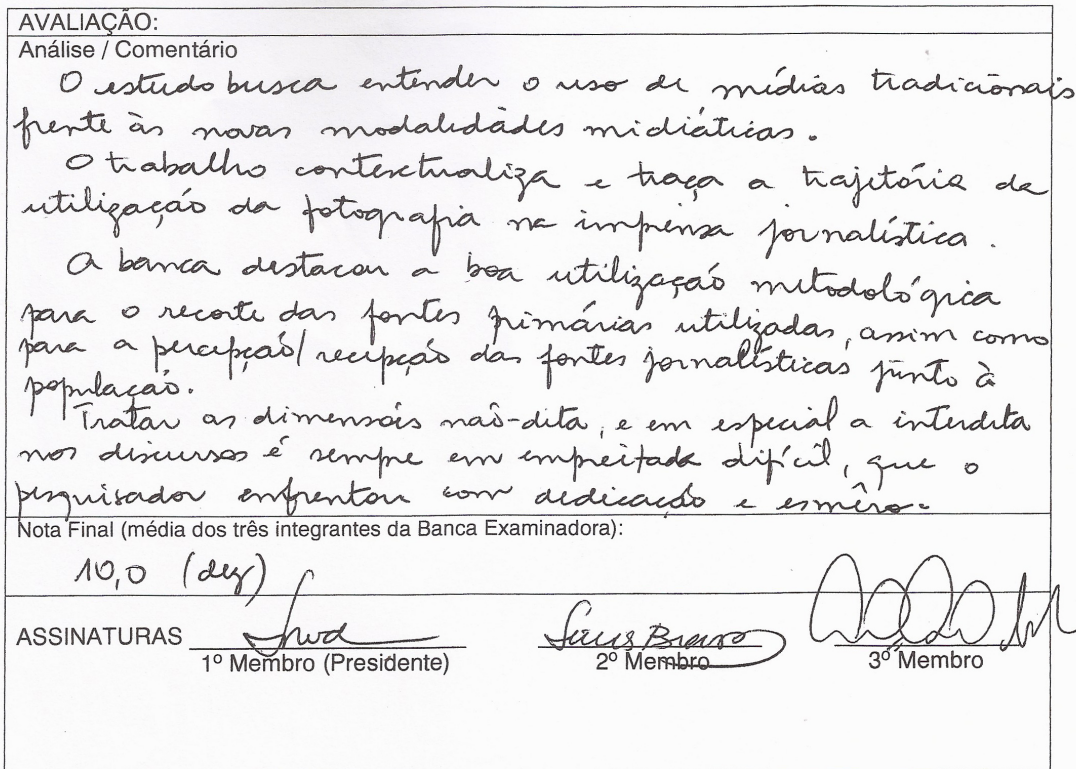 AVALIAÇÃO:
Análise / Comentário
O estudo busca entender o uso de mídias tradicionais
frente às novas modalidades midiáticas.
O trabalho contextualiza e traça a trajetória da
utilização da fotografia na imprensa jornalística.
A banca destacou a boa utilização metodológica
para o recorte das fontes primárias utilizadas, assim como
para a percepção/recepção das fontes jornalísticas junto à
população.
Tratar as dimensões não-dita, e em especial a interdita
nos discursos é sempre em empreitada difícil, que o
pesquisador enfrentou com dedicação e esmêro.
Nota Final (média dos três integrantes da Banca Examinadora):
10,0 (dez)
ASSINATURAS
1º Membro (Presidente) 2º Membro 3º Membro